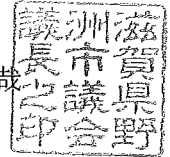 哉
滋賀県野
洲市議会
議長之印